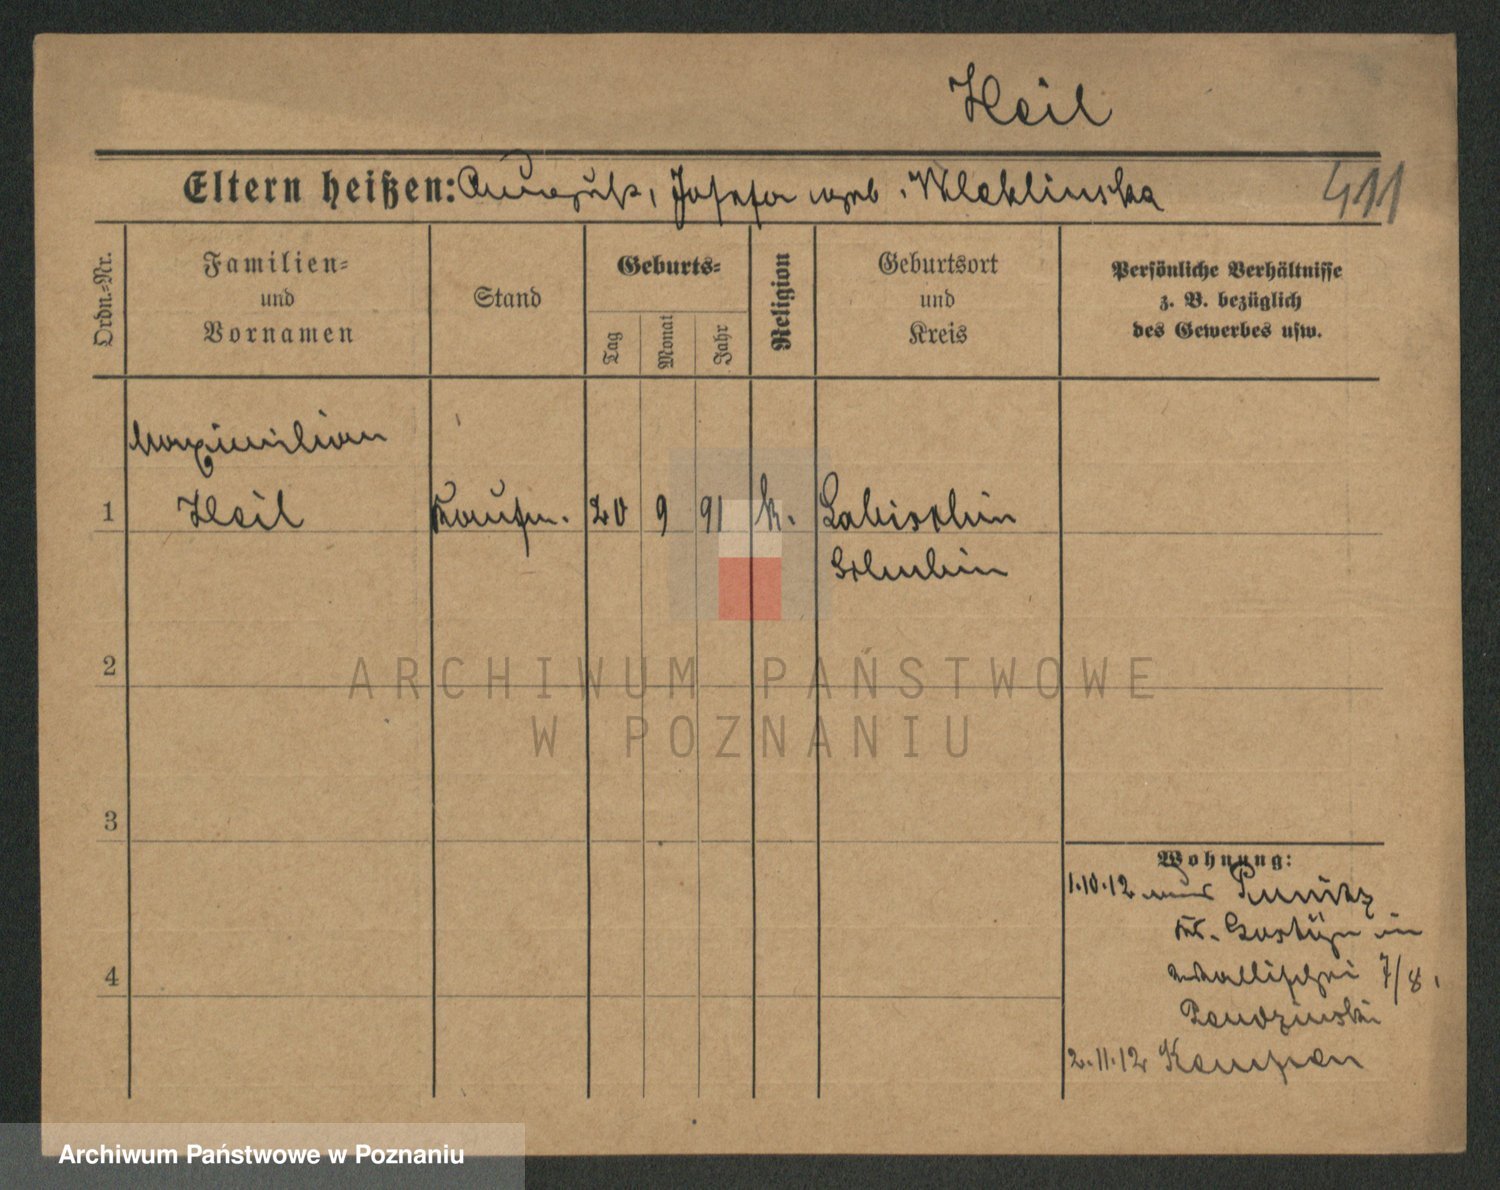 Heil
Eltern heißen: August, Josefa geb. Weklinska
411
Ordn.-Nr.
Familien-
und
Vornamen
Stand
Geburts-
Tag
Monat
Jahr
Religion
Geburtsort
und
Kreis
Persönliche Verhältnisse
z. B. bezüglich
des Gewerbes usw.
Maximilian
1 Heil Kaufm. 20 9 91 k. Labischin
Schubin
2
ARCHIWUM PAŃSTWOWE
W POZNANIU
3
Wohnung:
1.10.12 aus Punitz
Kr. Gostyn in
Wallischei 7/8,
4
2.11.12 Kempen
Archiwum Państwowe w Poznaniu